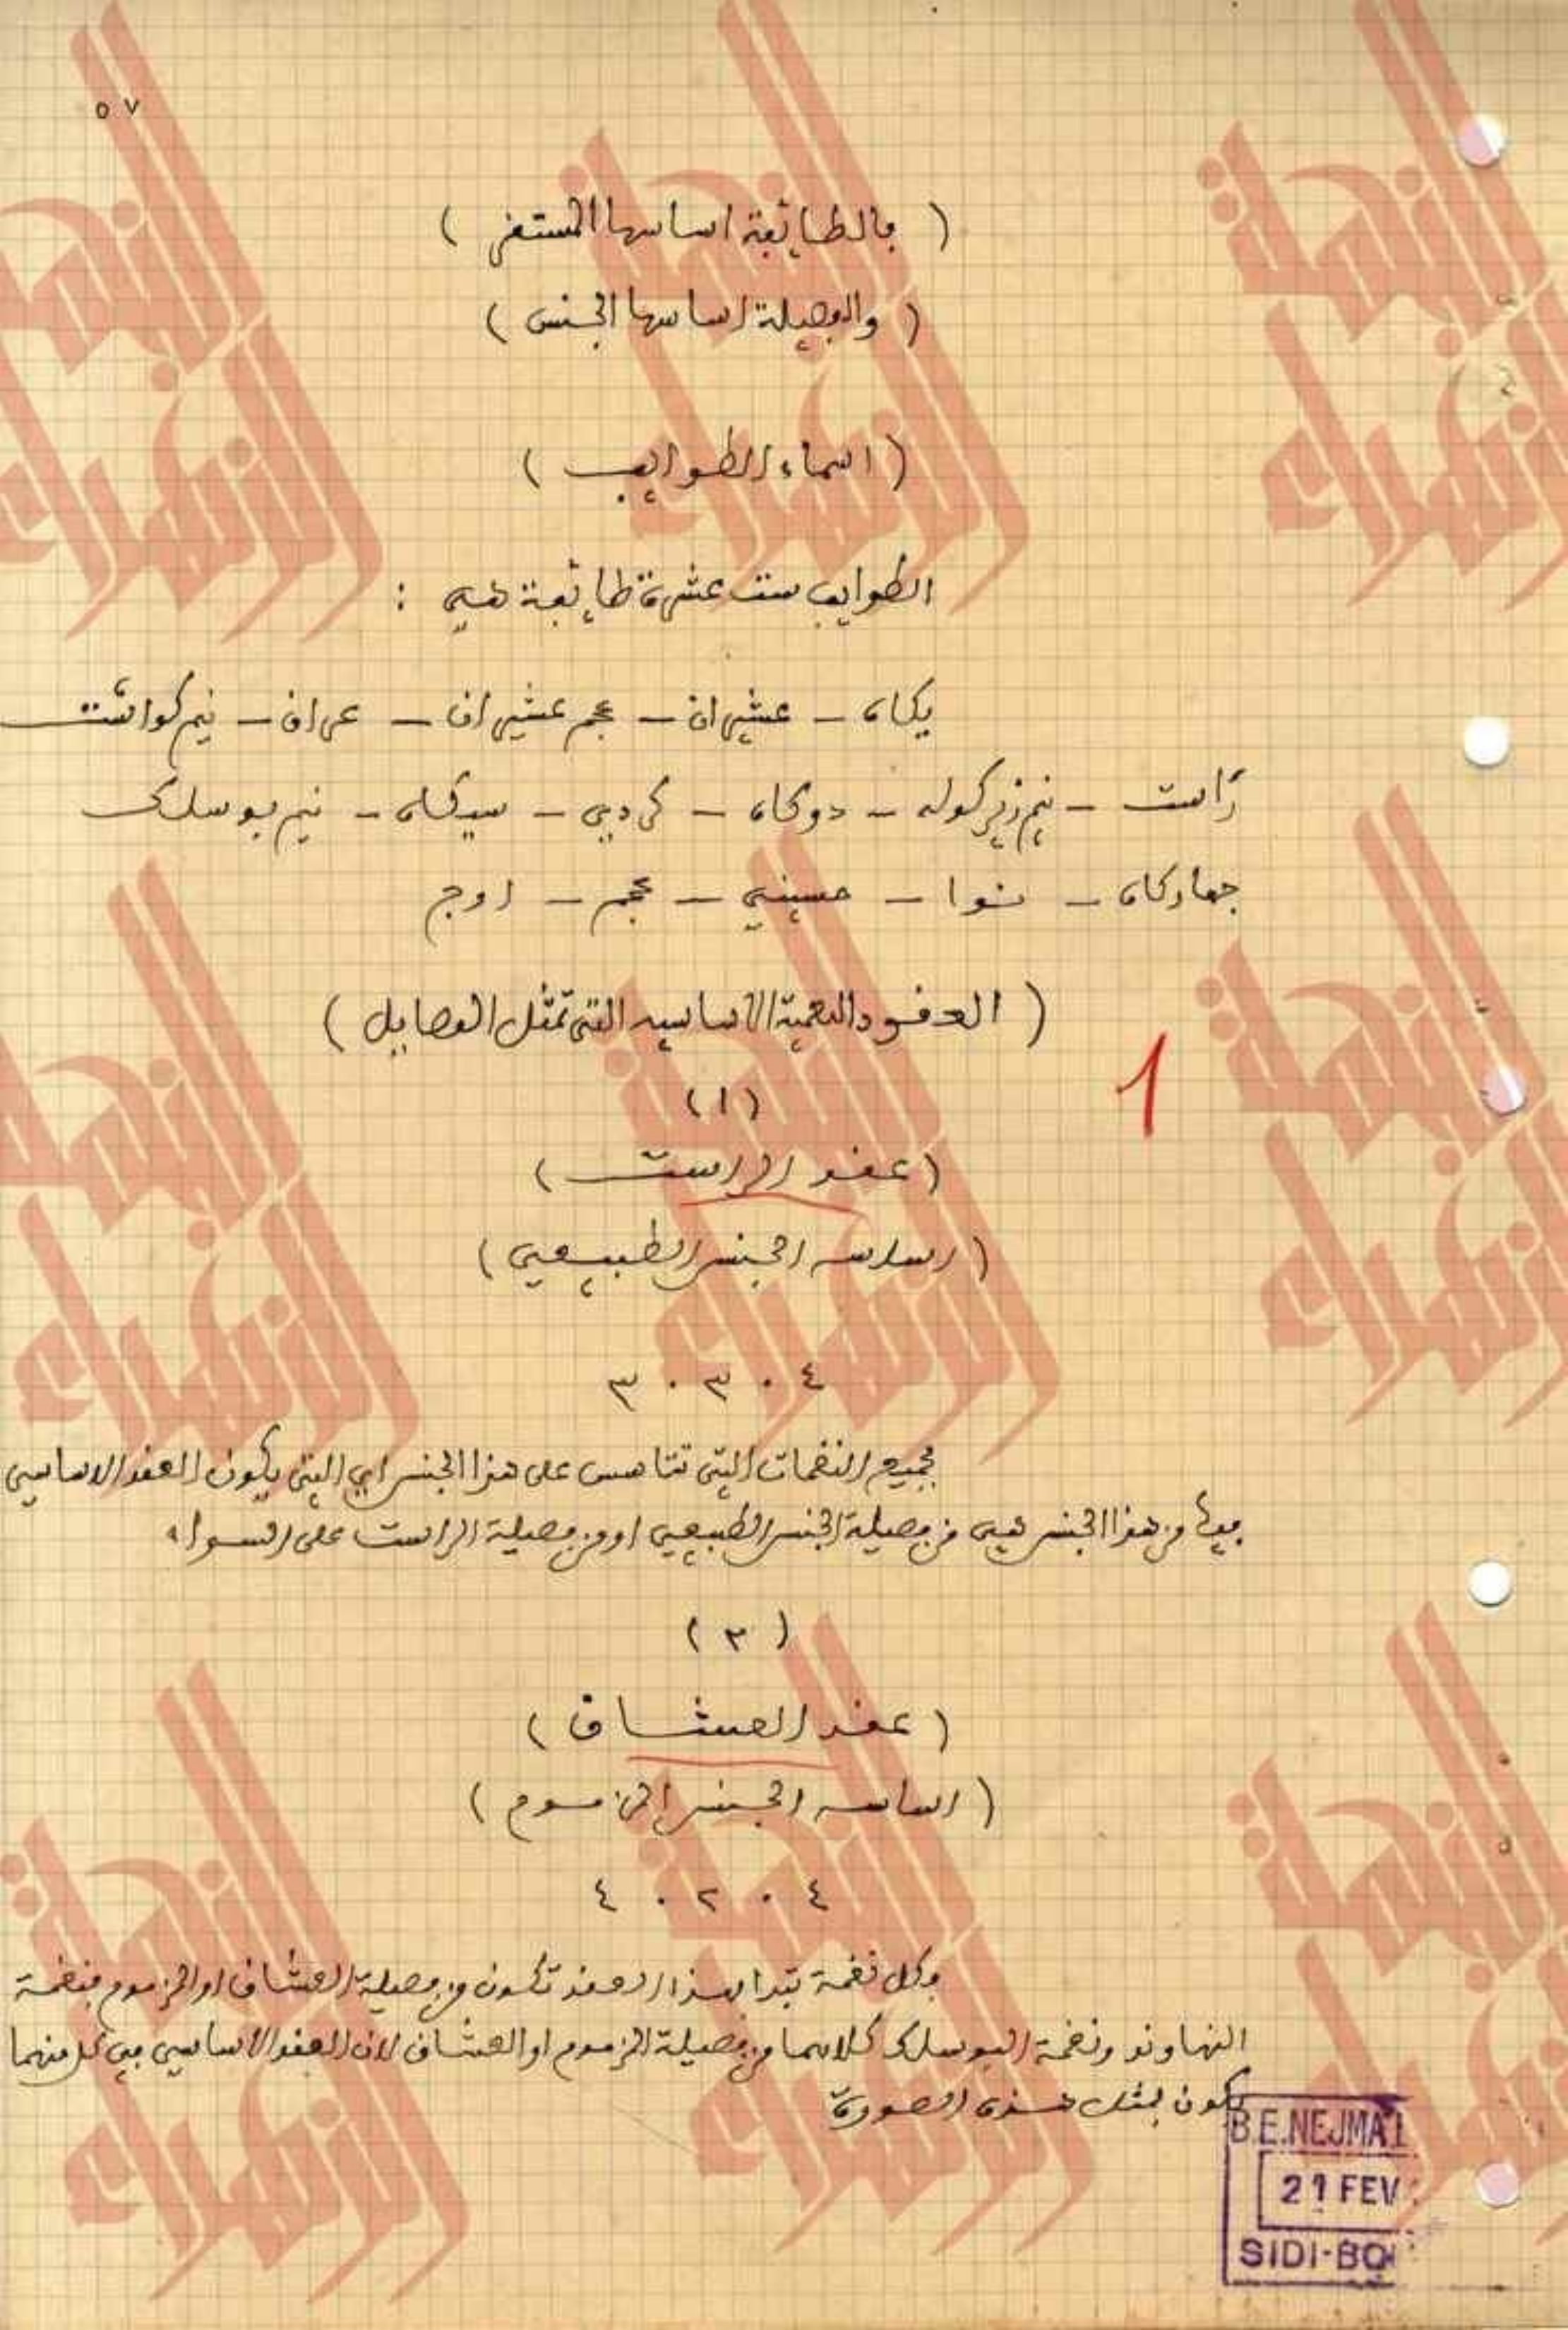 ٥٧
( فالطائفة اساسها المستقر )
( والفصيلة اساسها الجنس )
( اسماء الطوايف )
الطوايف ست عشرة طائفة هي :
يكاه – عشيران – عجم عشيران – عراق – نيم كواشت
راست – نيم زيركوله – دوكاه – كردي – سيكاه – نيم بوسلك
جهاركاه – نوا – حسيني – عجم – اوج
( العقود النغمية الاساسيه التي تمثل الفصايل )
1
( ١ )
( عقد الراست )
( اساسه الجنس الطبيعي )
٤ . ٣ . ٣
فجميع النغمات التي تتاسس على هذا الجنس اي التي يكون العقد الاساسي
فيها من هذا الجنس هي من فصيلة الجنس الطبيعي او من فصيلة الراست على السواء
( ٢ )
( عقد العشاق )
( اساسه الجنس المزموم )
٤ . ٢ . ٤
وكل نغمة تبدا بهذا العقد تكون من فصيلة العشاق او المزموم فنغمة
النهاوند ونغمة البوسلك كلاهما من فصيلة المزموم او العشاق لان العقد الاساسي في كل منهما
يكون بمثل هذه الصورة
B.E.NEJMA
21 FEV
SIDI-BO
النجمة الزهراء